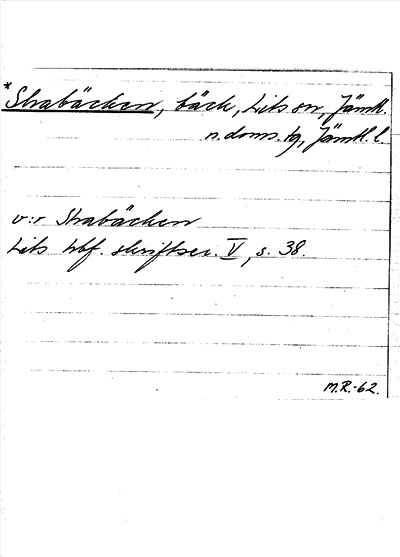 *Strabäcken, bäck, Lits sn, Jämtl.
n. doms. tg, Jämtl. l.
v:r Strabäcken
Lits hbf. skriftser. V, s. 38.
M.R.-62.